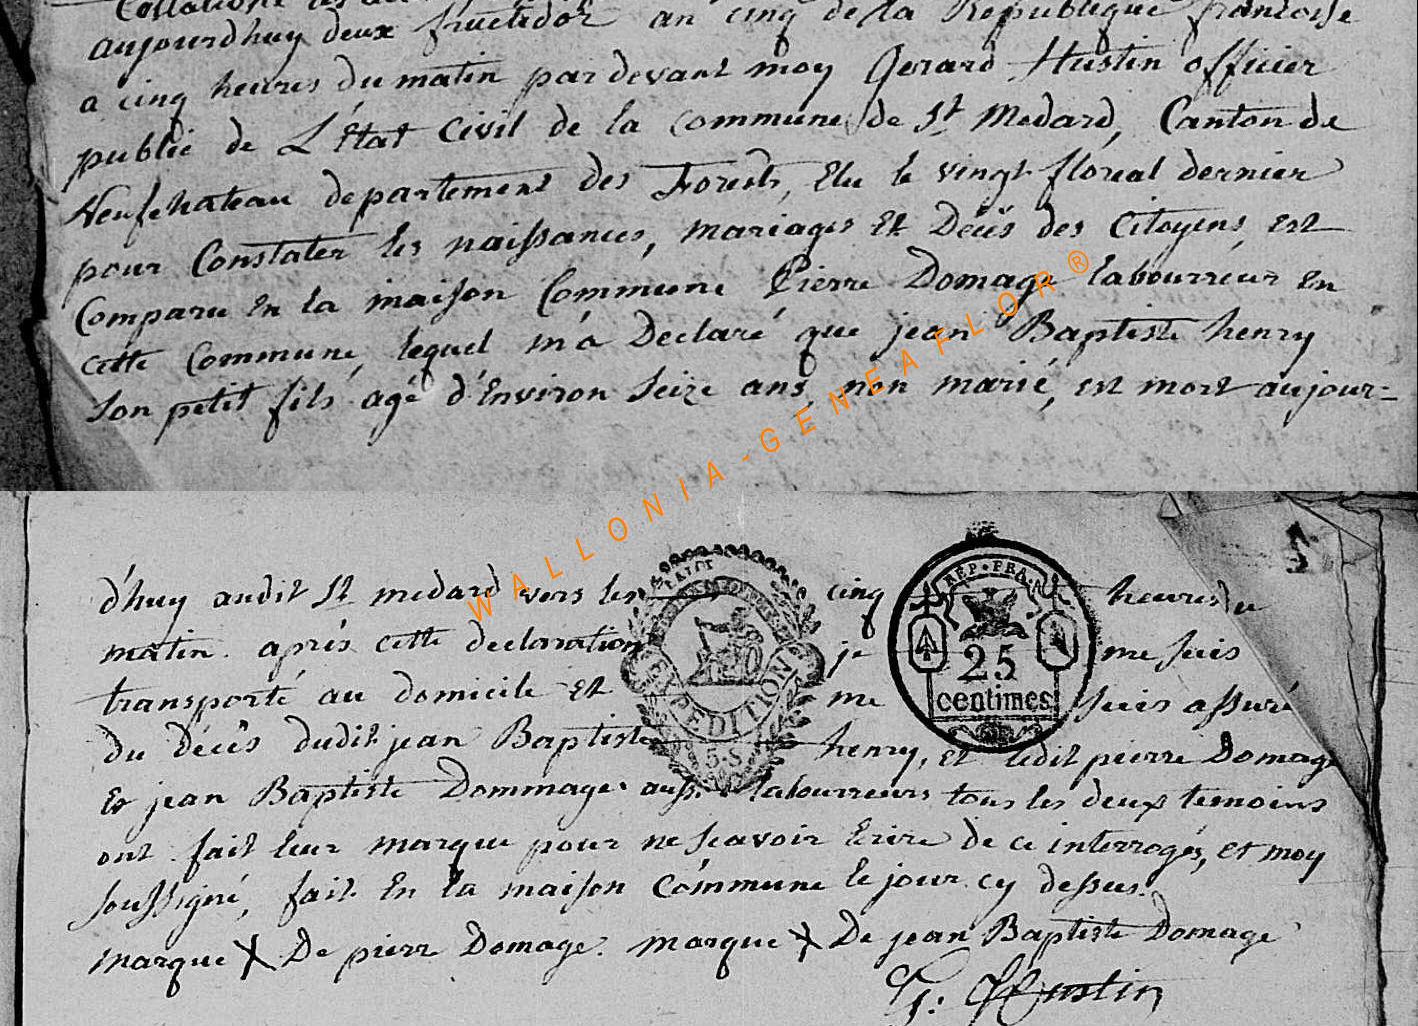 aujourdhuy deux fructidor an cinq de la Republique francoise
a cinq heures du matin par devant moy Gerard Hustin officier
public de L'état Civil de la commune de St Medard, Canton de
Neufchateau departement des Forests, Elu le vingt floréal dernier
pour Constater les naissances, mariages Et Décès des Citoyens, est
Comparu En la maison Commune Pierre Domage labourreur en
cette Commune, lequel m'a Declaré que jean Baptiste henry
son petit fils agé d'Environ seize ans, non marié, est mort aujour=
WALLONIA-GENEAFLOR®
d'huy audit St medard vers les cinq heures du
matin. après cette declaration je me suis
transporté au domicile et me suis assuré
du décès dudit jean Baptiste henry, et ledit pierre Domage
Et jean Baptiste Dommage aussi labourreurs tous les deux temoins
ont fait leur marque pour ne scavoir Ecrire de ce interrogés, et moy
soussigné, fait En la maison Commune le jour cy dessus.
marque X De pierr Domage. marque X De jean Baptiste Domage
G: Hustin
EXPEDITION
5.S
REP. FRA.
25
centimes